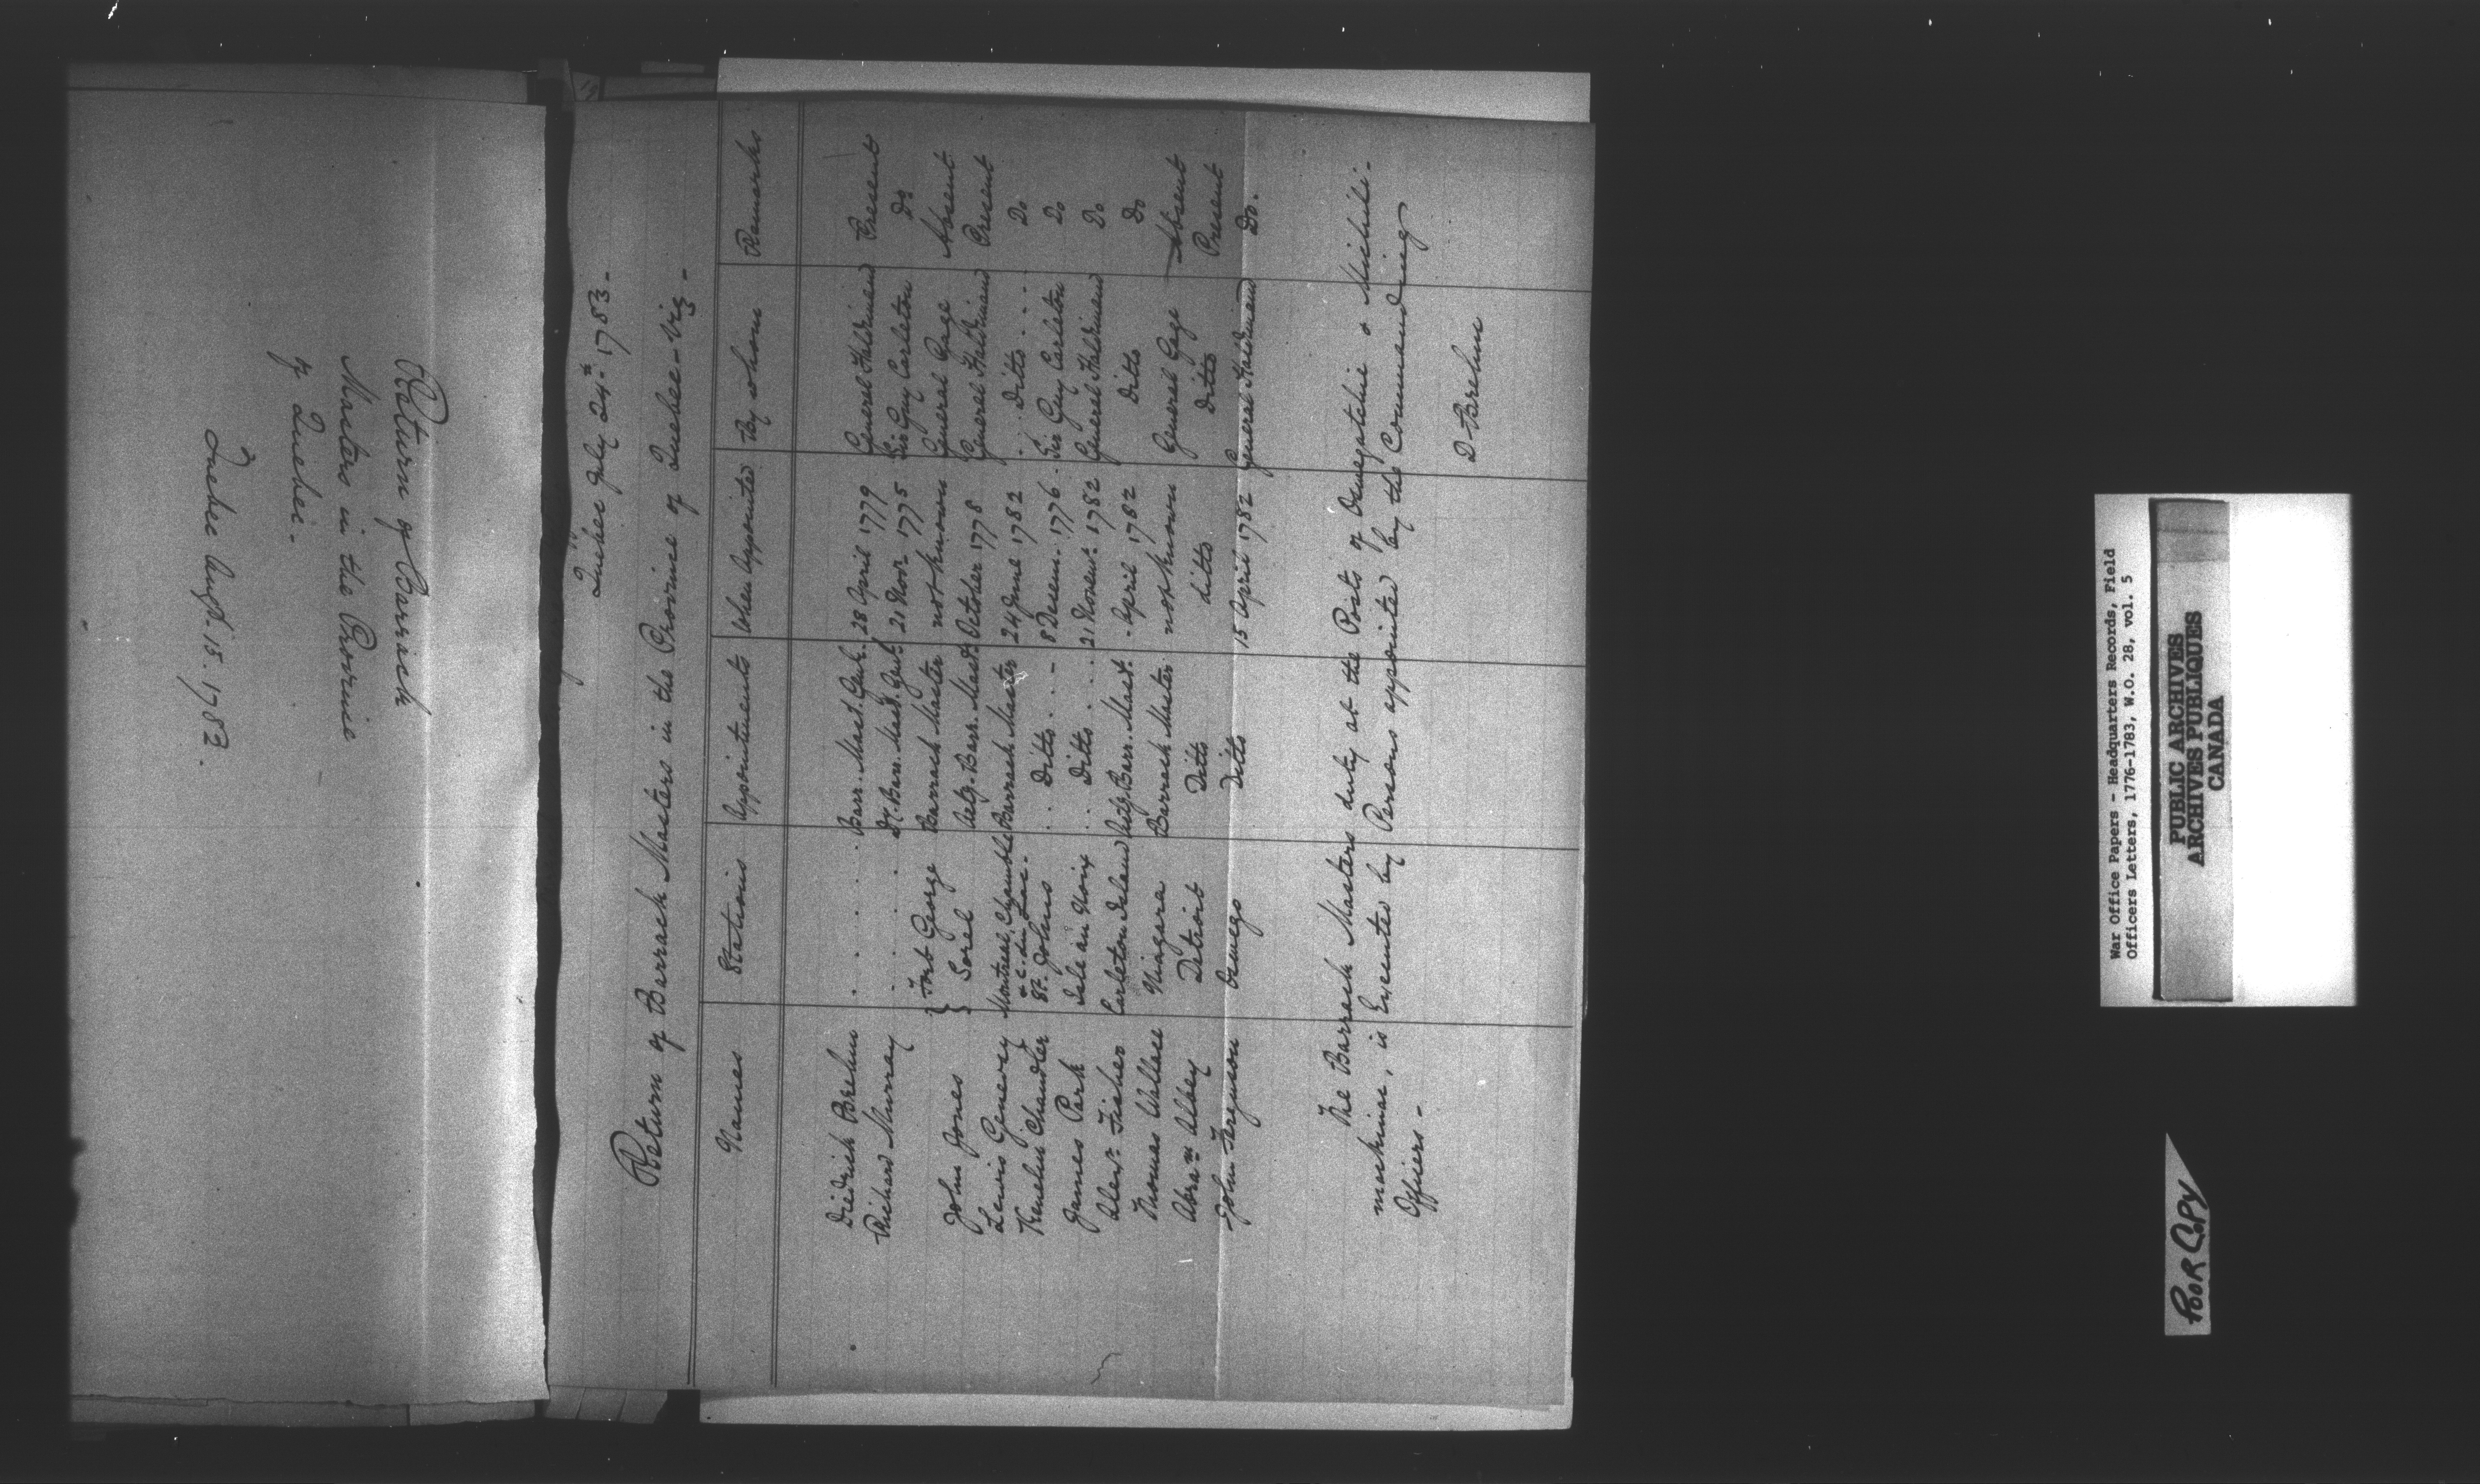 Return of Barrack
Masters in the Province
of Quebec.
Quebec Augt. 15. 1783.
Quebec July 24th 1783.-
Return of Barrack Masters in the Province of Quebec - Viz -
Names Stations Appointments When Appointed By whom Remarks
Diedrick Brehm . . . . . Barr. Mast. Genl. 28 April 1779 General Haldimand Present
Richard Murray . . . . Dy. Barr. Mast. Genl. 21 Novr. 1775 Sir Guy Carleton Do
John Jones } Fort George Barrack Master not known General Gage Absent
} Sorel Actg. Barr. Mastr. October 1778 General Haldimand Present
Lewis Genevey Montreal, Chamblé & C. du Lac. Barrack Master 24 June 1782 . . Ditto . . . Do
Kenelm Chandler St. Johns . . . Ditto . . - 8 Decem. 1776. Sir Guy Carleton Do
James Park Isle au Noix . . Ditto . . . 21 Novemr. 1782 General Haldimand Do
Alexr. Fisher Carleton Island Actg. Barr. Mast. - April 1782 Ditto Do
Thomas Wallace Niagara Barrack Master not known General Gage Absent
Abram Abbey Detroit Ditto ditto Ditto Present
John Ferguson Oswego Ditto 15 April 1782 General Haldimand Do.
The Barrack Masters duty at the Posts of Oswegatchie & Michili-
mackinac, is Executed by Persons appointed by the Commanding
Officers -
D Brehm
War Office Papers - Headquarters Records, Field
Officers Letters, 1776-1783, W.O. 28, vol. 5
PUBLIC ARCHIVES
ARCHIVES PUBLIQUES
CANADA
POOR COPY